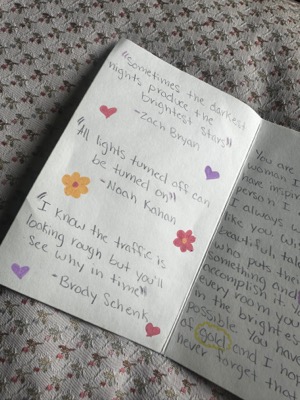 "Sometimes the darkest
nights produce the
brightest stars"
-Zach Bryan
"All lights turned off can
be turned on"
-Noah Kahan
"I know the traffic is
looking rough but you'll
see why in time"
-Brody Schenk
You are
woman
have inspir
person I
I always
like you. wh
beautiful, tal
who puts the
something and
accomplish it.
every room you
in the brightes
possible. You have
of gold and I hop
never forget that